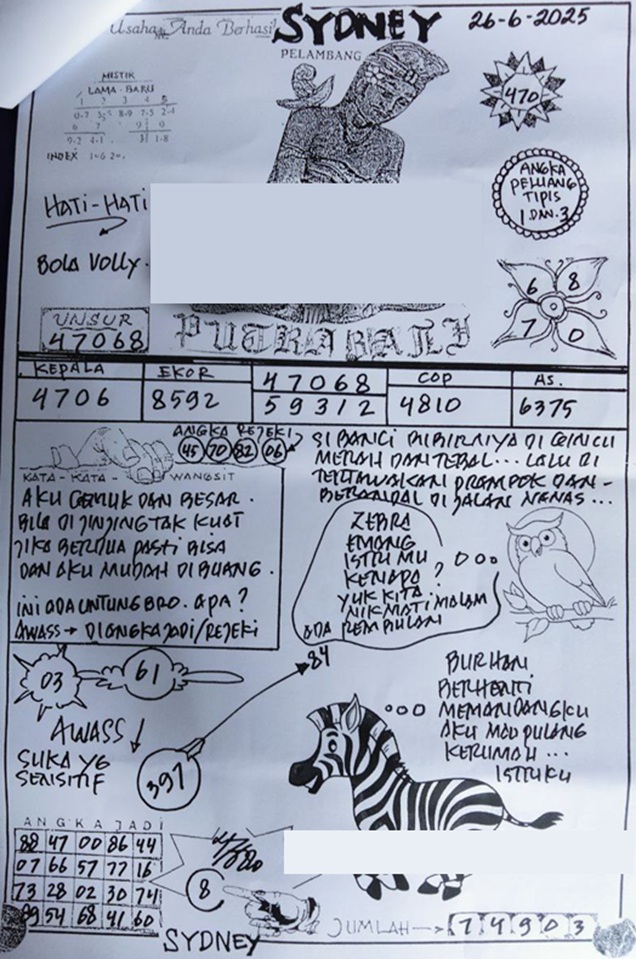 Usaha Anda Berhasil
SYDNEY
26-6-2025
PELAMBANG
MISTIK
LAMA - BARU
1 2 3 4 5
0-7 8-9 7-5 2-4
9-2 4-1 1-8
INDEX
470
HATI-HATI
ANGKA
PELUANG
TIPIS
1 DAN 3
BOLA VOLLY.
6 8
7 0
UNSUR
47068
PUTRA BALI
KEPALA EKOR 47068 COP AS.
4706 8592 59312 4810 6375
ANGKA REJEKI
45 70 82 06
KATA - KATA - WANGSIT
AKU GEMUK DAN BESAR.
BILA DI JINJING TAK KUAT
JIKA BERDUA PASTI BISA
DAN AKU MUDAH DIBUANG.
INI ADA UNTUNG BRO. APA?
AWASS → DI ANGKA JADI/REJEKI
SI BANCI BIBIRNIYA DI GINCU
MERAH DAN TEBAL... LALU DI
TERTAWAKAN PRAMPOK DAN-
BERANDAL DI JALAN NANAS...
ZEBRA
EMANG
ISTRI MU
KENAPA?
YUK KITA
NIKMATI MALAM
ADA REMBULAN
84
03
61
AWASS
SUKA YG
SENSITIF
397
BURHAN
BERHENTI
MEMANDANGKU
AKU MAU PULANG
KERUMAH...
ISTRIKU
ANGKA JADI
88 47 00 86 44
07 66 57 77 16
73 28 02 30 74
89 54 68 41 60
8
SYDNEY
JUMLAH → 7 4 9 0 3